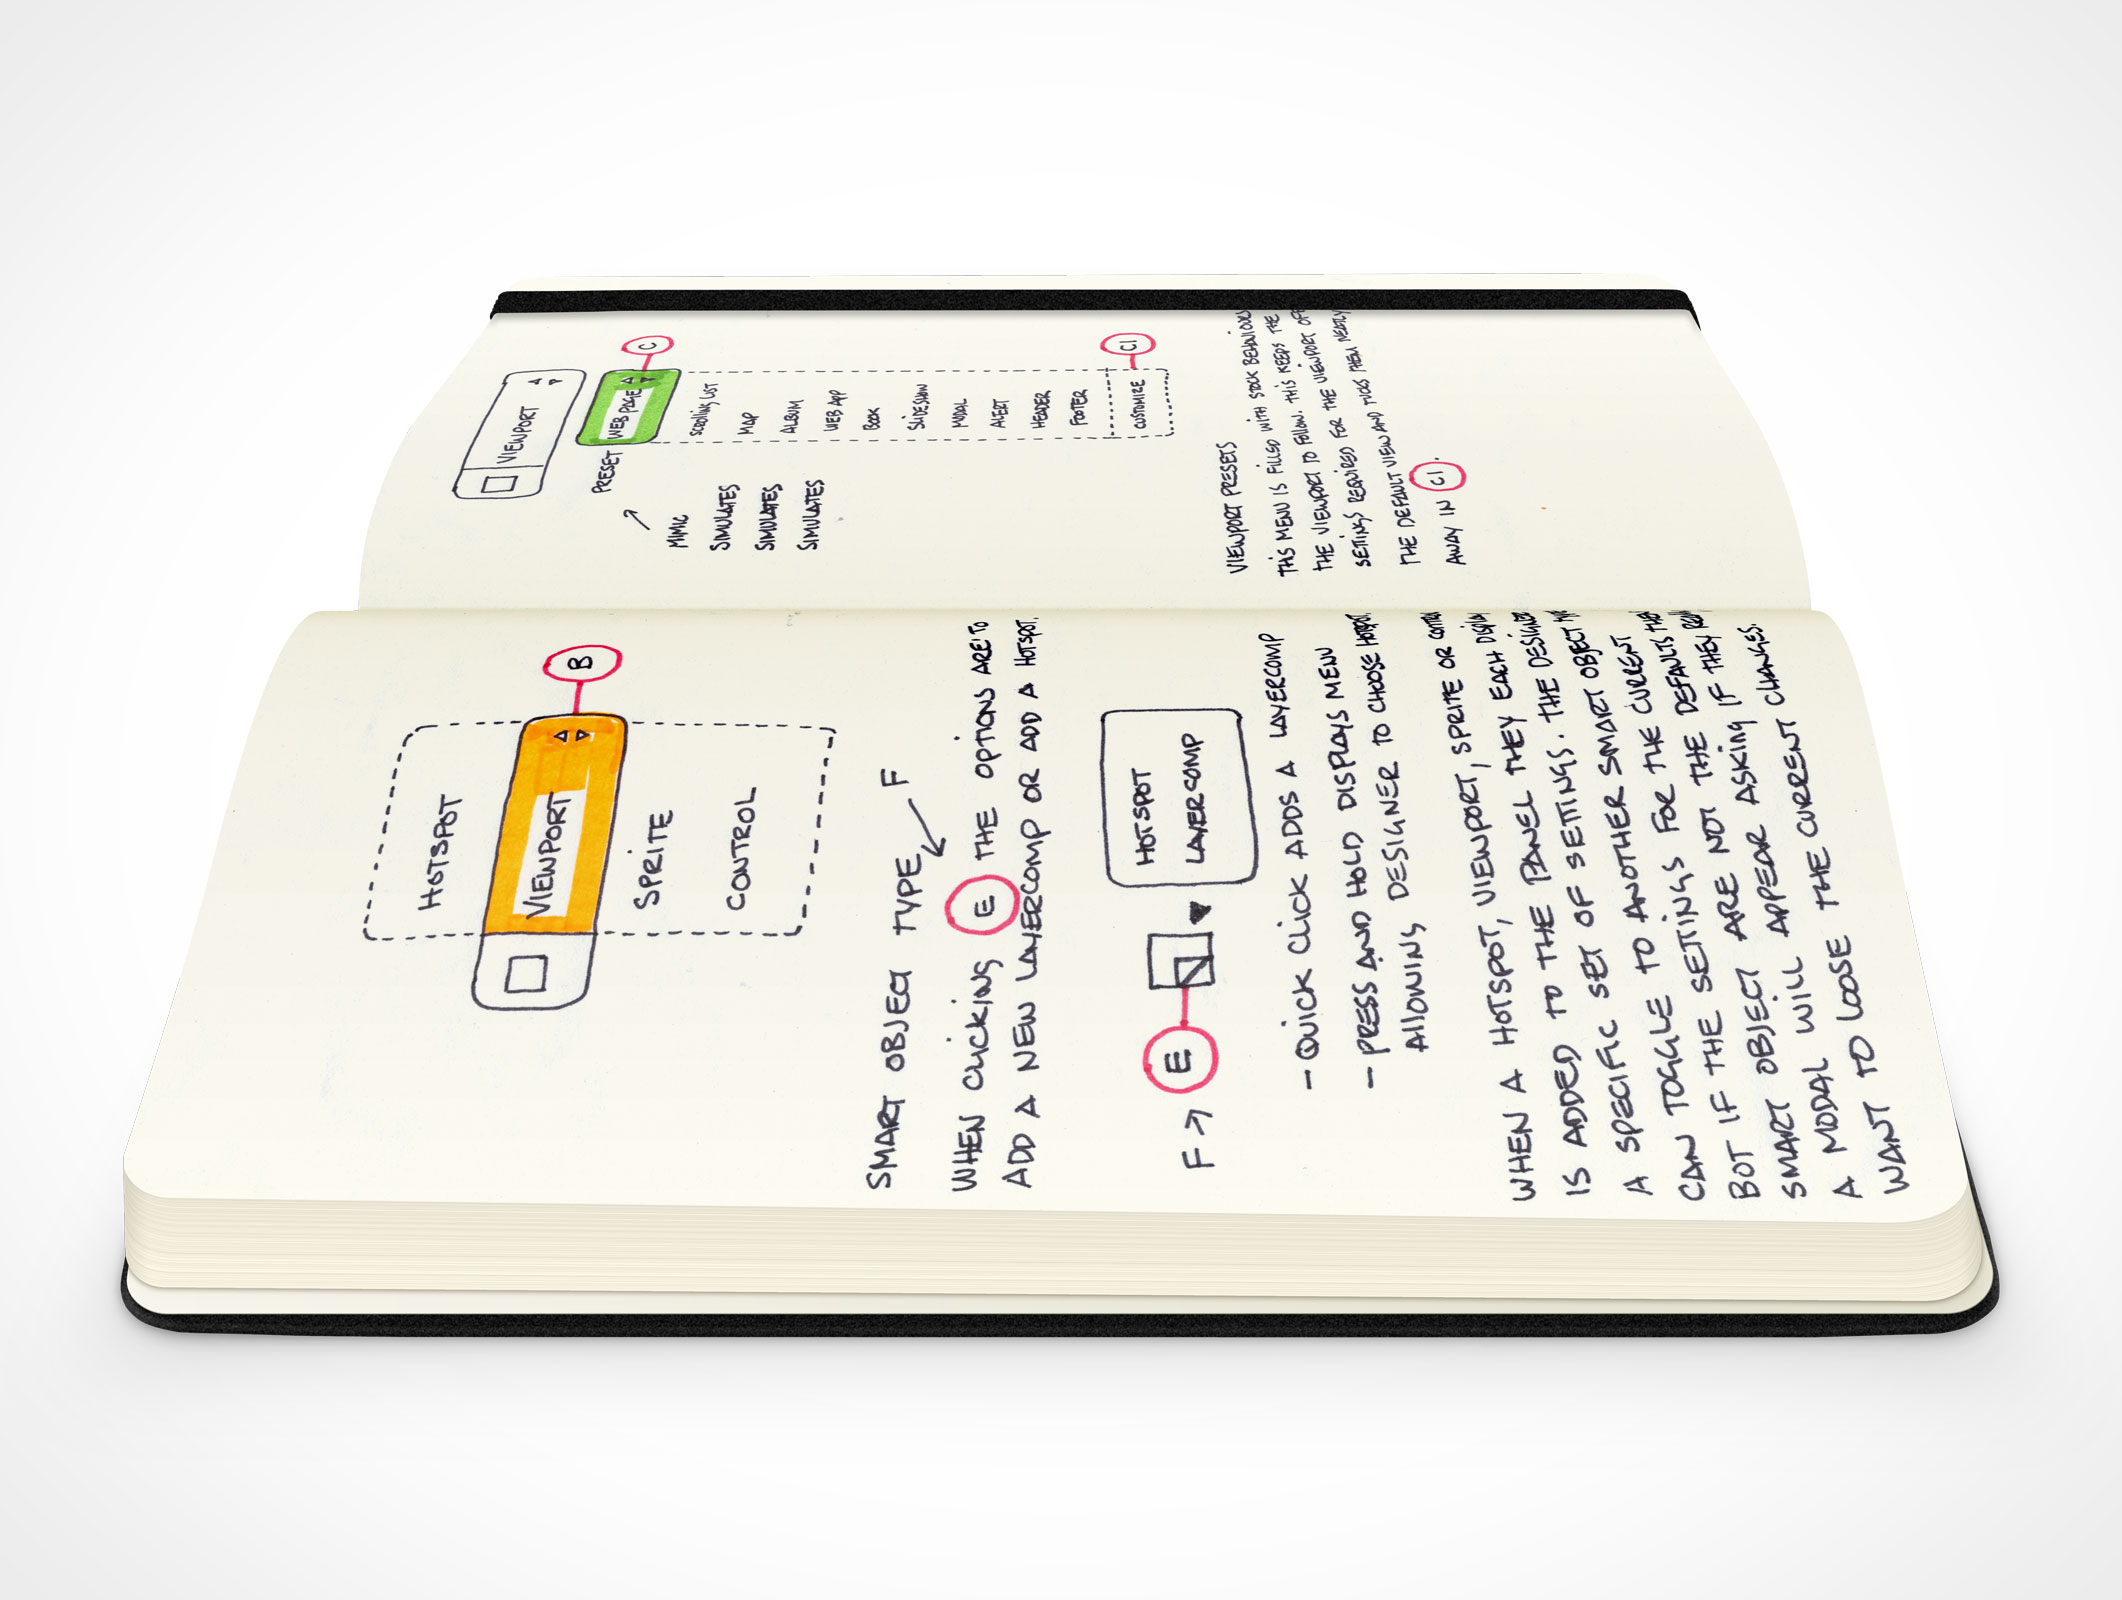 B
HOTSPOT
VIEWPORT
SPRITE
CONTROL
SMART OBJECT TYPE F
WHEN CLICKING E THE OPTIONS ARE TO
ADD A NEW LAYERCOMP OR ADD A HOTSPOT.
F E
HOTSPOT
LAYERCOMP
- QUICK CLICK ADDS A LAYERCOMP
- PRESS AND HOLD DISPLAYS MENU
ALLOWING DESIGNER TO CHOOSE HOTSPOT.
WHEN A HOTSPOT, VIEWPORT, SPRITE OR CONTROL
IS ADDED TO THE PANEL THEY EACH DISPLAY
A SPECIFIC SET OF SETTINGS. THE DESIGNER
CAN TOGGLE TO ANOTHER SMART OBJECT
BOT IF THE SETTINGS FOR THE CURRENT
SMART OBJECT ARE NOT THE DEFAULTS
A MODAL WILL APPEAR ASKING IF THEY
WANT TO LOOSE THE CURRENT CHANGES.
VIEWPORT
C
PRESET WEB PAGE
MIMIC SCROLLING LIST
SIMULATES MAP
SIMULATES ALBUM
SIMULATES WEB APP
BOOK
SLIDESHOW
MODAL
ALERT
HEADER
FOOTER
CUSTOMIZE C1
VIEWPORT PRESETS
THIS MENU IS FILLED WITH STOCK BEHAVIOURS
THE VIEWPORT TO FOLLOW. THIS KEEPS THE
SETTINGS REQUIRED FOR THE VIEWPORT OFF
THE DEFAULT VIEW AND TUCKS THEM NEATLY
AWAY IN C1.